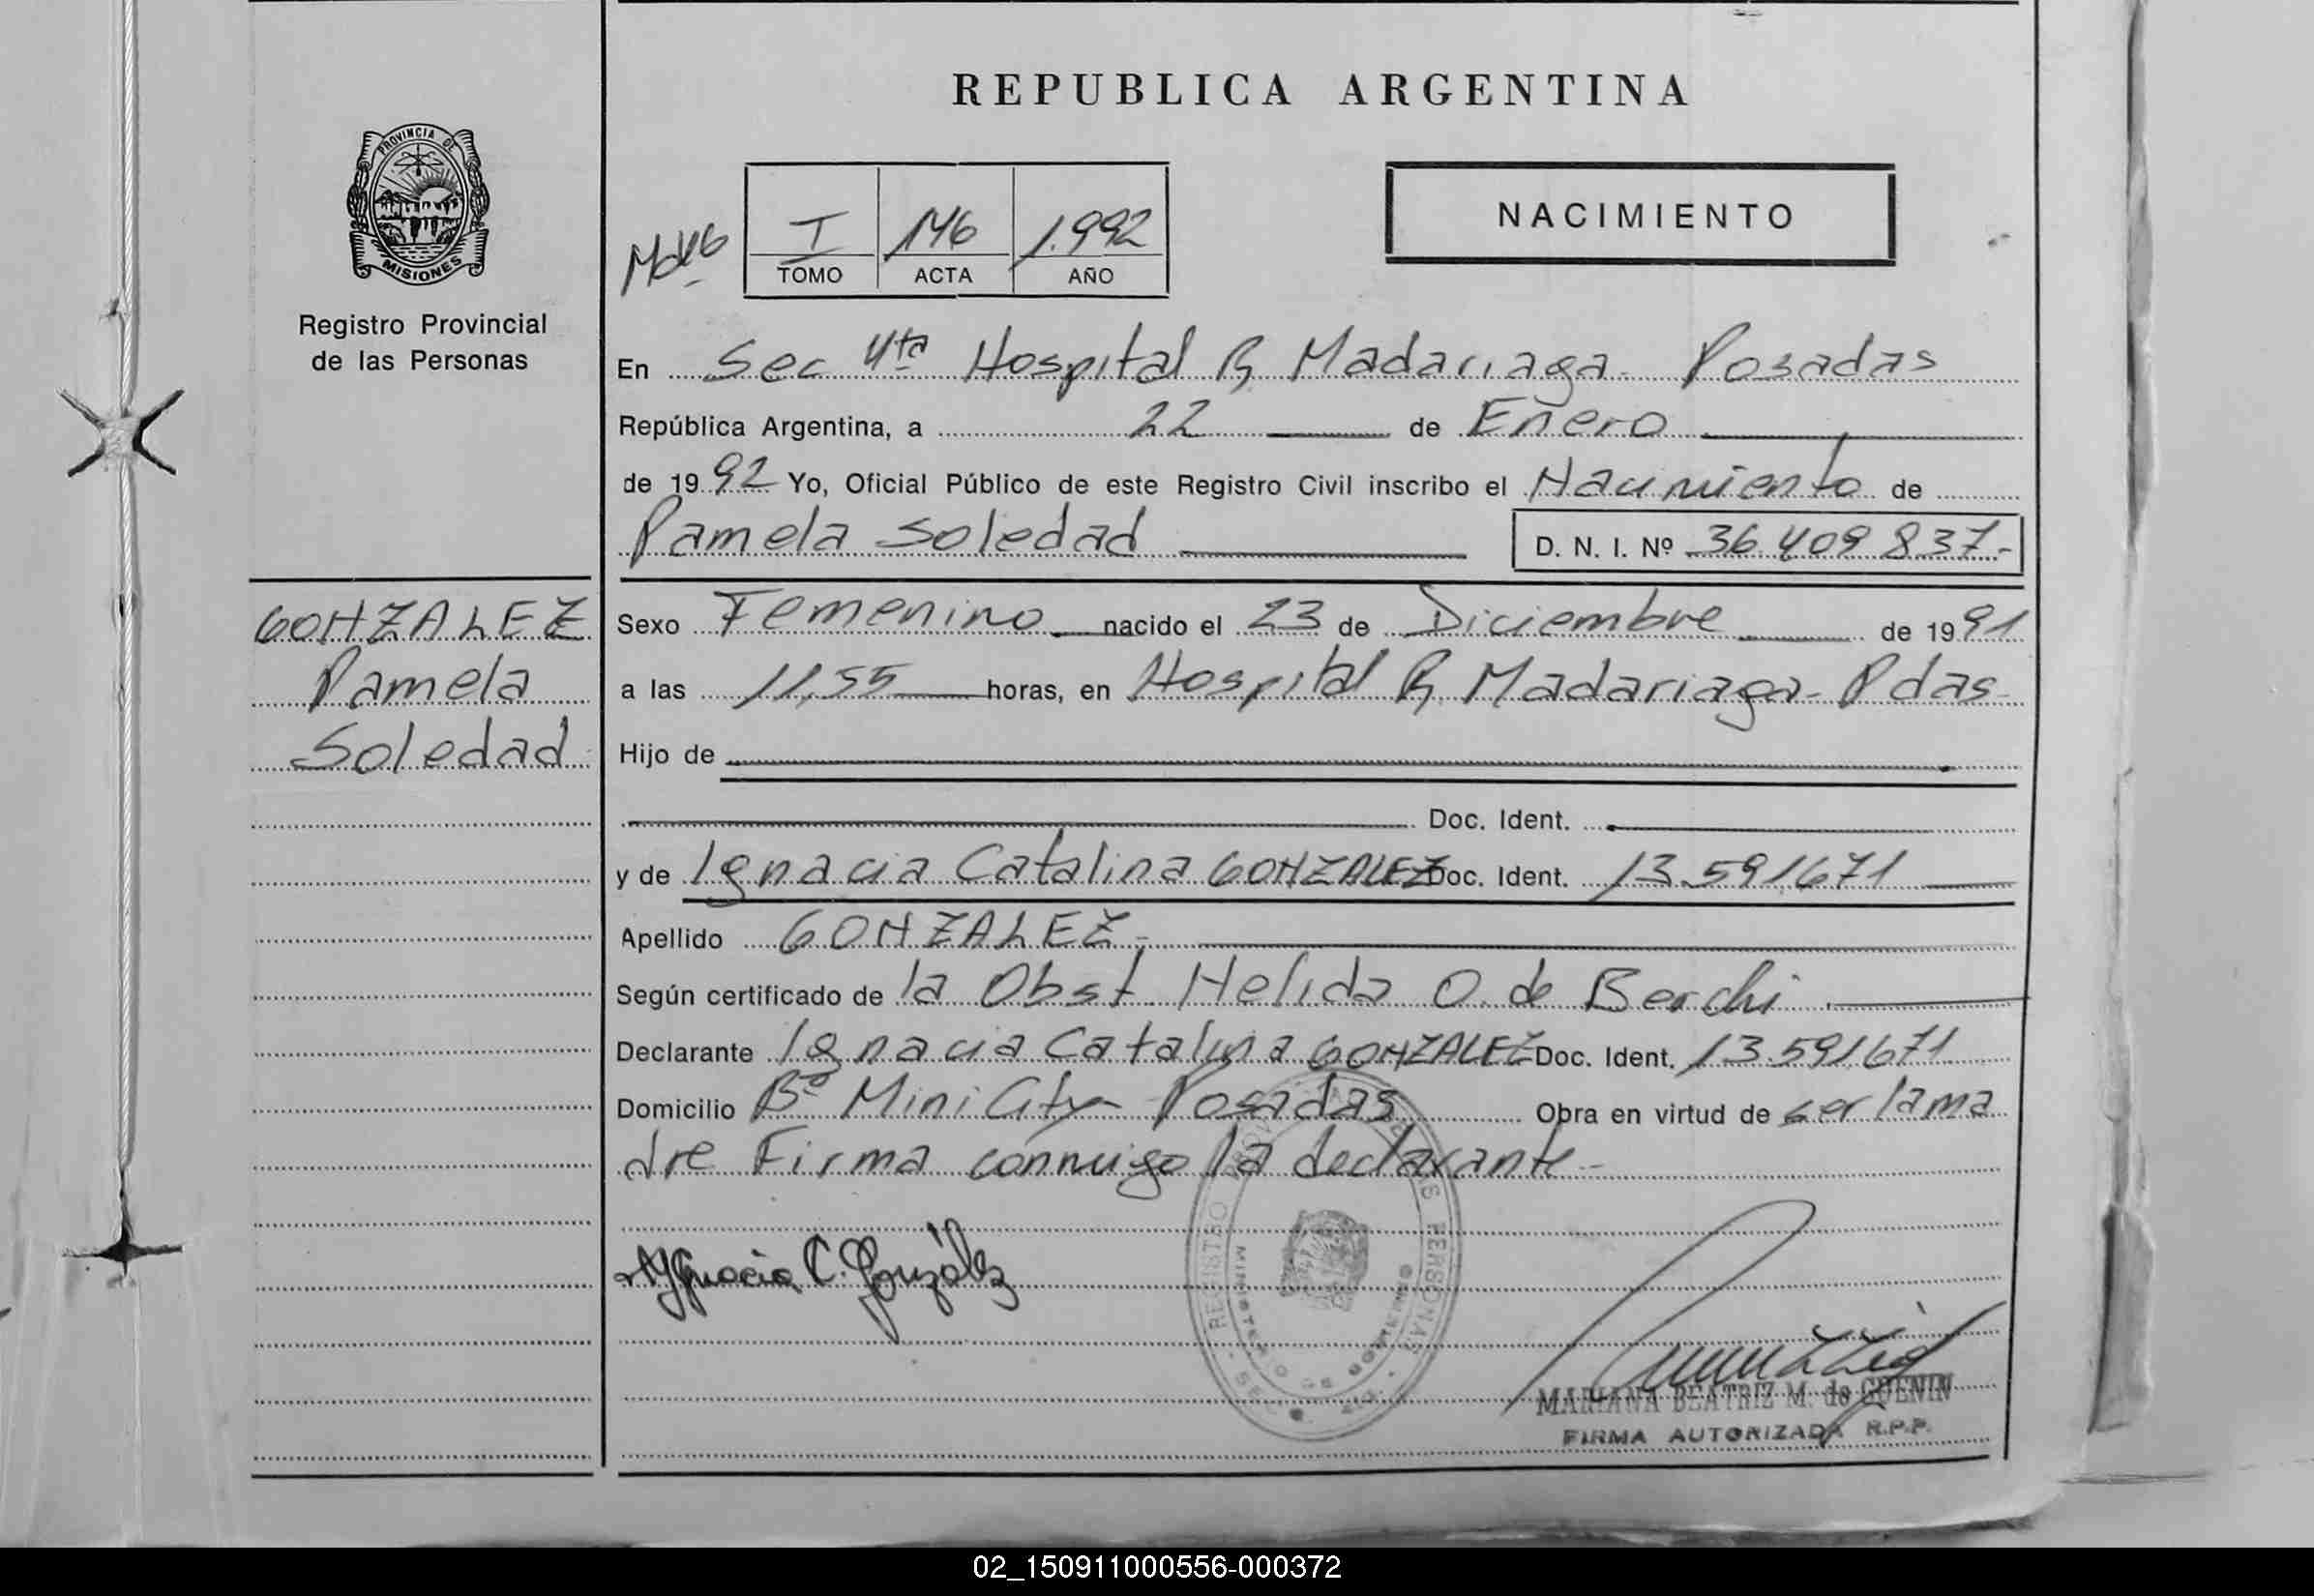 REPUBLICA ARGENTINA
PROVINCIA DE
MISIONES
Registro Provincial
de las Personas
I 146 1.992
TOMO ACTA AÑO
NACIMIENTO
En Sec 4ta Hospital R Madariaga - Posadas
República Argentina, a 22 de Enero
de 1992 Yo, Oficial Público de este Registro Civil inscribo el Nacimiento de
Pamela Soledad D. N. I. Nº 36 409 837-
GONZALEZ
Pamela
Soledad
Sexo Femenino nacido el 23 de Diciembre de 1991
a las 11,55 horas, en Hospital R Madariaga - Pdas
Hijo de
Doc. Ident.
y de Ignacia Catalina GONZALEZ Doc. Ident. 13.591,671
Apellido GONZALEZ.-
Según certificado de la Obst. Helida O. de Berchi
Declarante Ignacia Catalina GONZALEZ Doc. Ident. 13.591,671
Domicilio Bº Mini City - Posadas Obra en virtud de ser la ma
dre Firma conmigo la declarante-
Ignacia C. González
REGISTRO PERSONAS
MINISTERIO DE GOBIERNO
MARIANA BEATRIZ M. de GUENIN
FIRMA AUTORIZADA R.P.P.
02_150911000556-000372